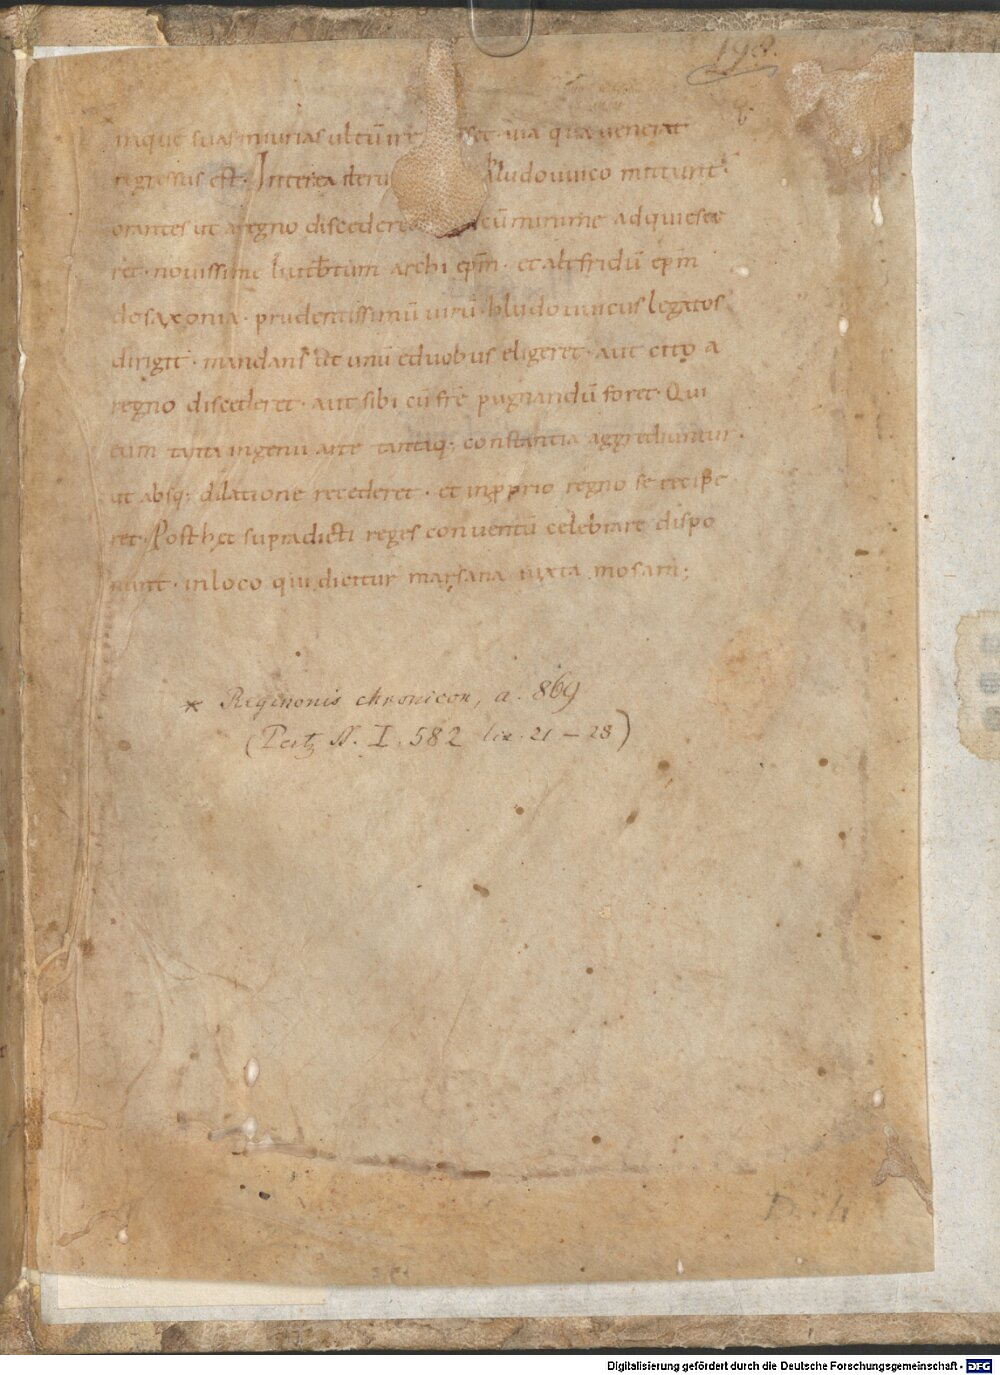 198.
inque suas iniurias ultū ire sset · via qua venerat
regressus est · Interea iteru hludouuico mittunt ·
orantes ut a regno discedere cū minime adquiesce
ret · novissime liutbtum archi epm̄ · et altfridū epm̄
de saxonia · prudentissimū virū · hludouuicus legatos
dirigit · mandans ut unū eduobus eligeret · aut cito a
regno discederet · aut sibi cū fre pugnandū foret · Qui
cum tanta ingenii arte tantaq; constantia aggrediuntur ·
ut absq; dilatione recederet · et in pprio regno se recipe
ret · Post hęc supradicti reges conventū celebrare dispo
nunt · in loco qui dicitur marsana iuxta mosam;
* Reginonis chronicon, a. 869
(Pertz SS. I. 582 lin. 21 – 28)
Digitalisierung gefördert durch die Deutsche Forschungsgemeinschaft · DFG